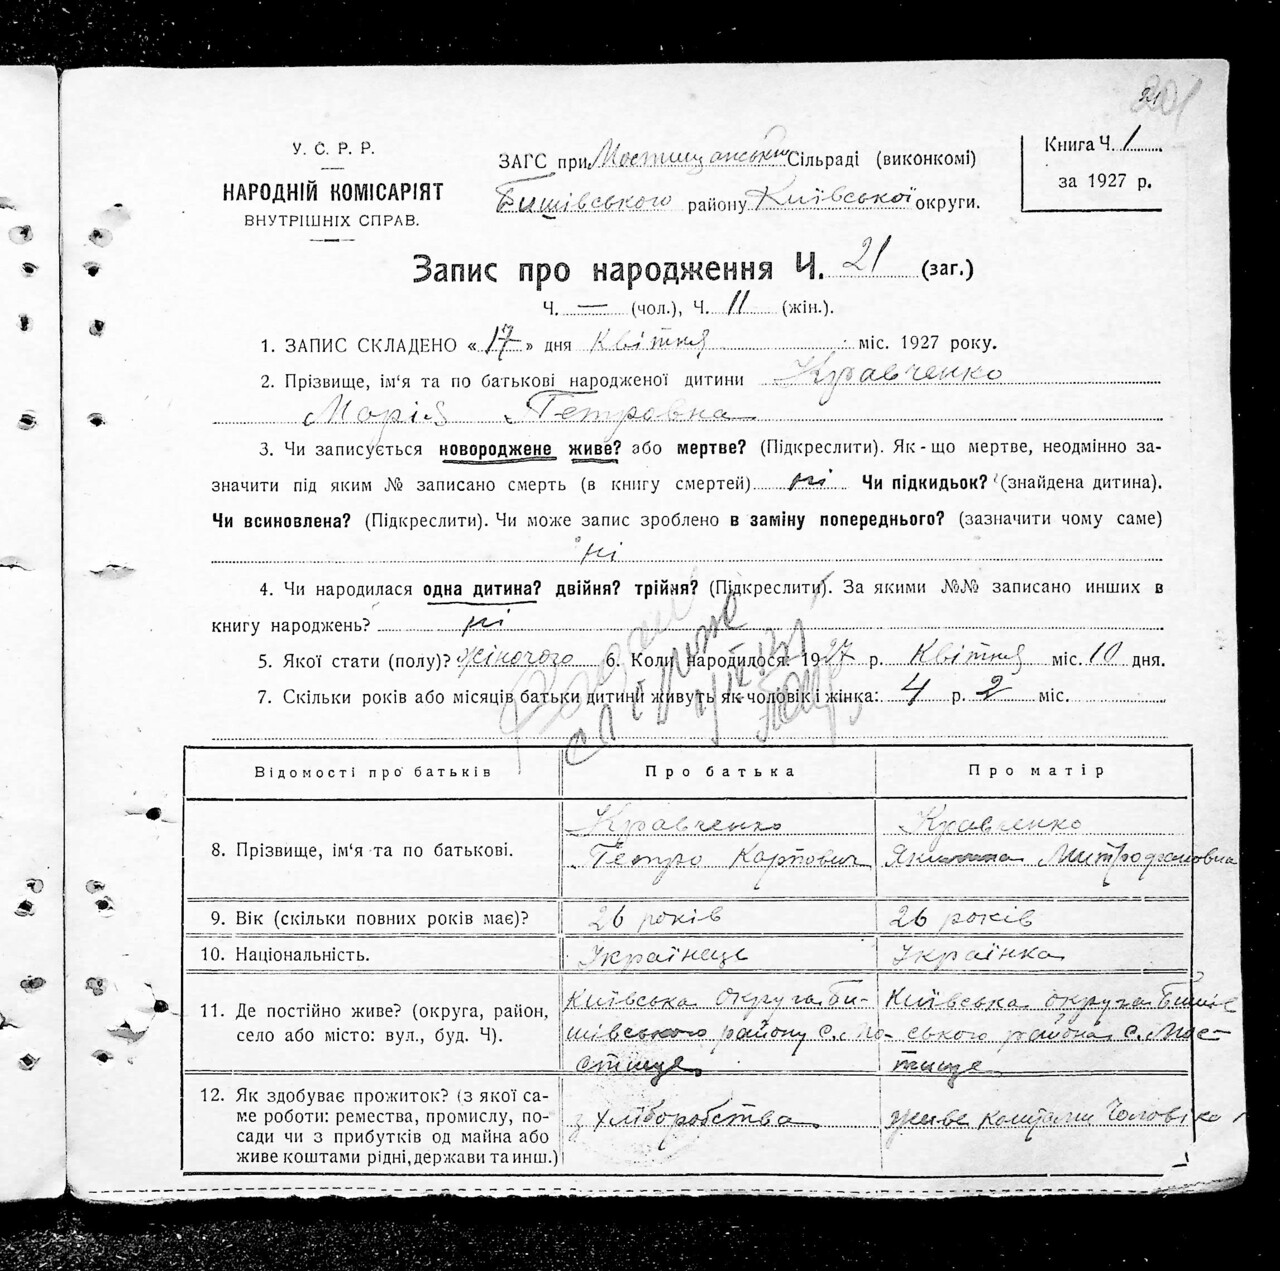 21
У. С. Р. Р.
НАРОДНІЙ КОМІСАРІЯТ
ВНУТРІШНІХ СПРАВ.
ЗАГС при Мостищанській Сільраді (виконкомі)
Бишівського району Київської округи.
Книга Ч. 1
за 1927 р.
Запис про народження Ч. 21 (заг.)
Ч. — (чол.), Ч. 11 (жін.).
1. ЗАПИС СКЛАДЕНО «17» дня Квітня міс. 1927 року.
2. Прізвище, ім'я та по батькові народженої дитини Кравченко
Марія Петровна
3. Чи записується новороджене живе? або мертве? (Підкреслити). Як-що мертве, неодмінно за-
значити під яким № записано смерть (в книгу смертей) ні Чи підкидьок? (знайдена дитина).
Чи всиновлена? (Підкреслити). Чи може запис зроблено в заміну попереднього? (зазначити чому саме)
ні
4. Чи народилася одна дитина? двійня? трійня? (Підкреслити). За якими №№ записано инших в
книгу народжень? ні
5. Якої стати (полу)? жіночого 6. Коли народилося: 1927 р. Квітня міс. 10 дня.
7. Скільки років або місяців батьки дитини живуть як чоловік і жінка: 4 р. 2 міс.
Відомості про батьків Про батька Про матір
8. Прізвище, ім'я та по батькові.
Кравченко
Петро Карпович
Кравченко
Митрофановна
9. Вік (скільки повних років має)? 26 років 26 років
10. Національність. Українець Українка
11. Де постійно живе? (округа, район,
село або місто: вул., буд. Ч).
Київська округа Би-
шівського району с. Мо-
стище
Київська округа Бишів
ського района с. Мос-
тище
12. Як здобуває прожиток? (з якої са-
ме роботи: ремества, промислу, по-
сади чи з прибутків од майна або
живе коштами рідні, держави та инш.)
з Хліборобства
живе коштами Чоловіка